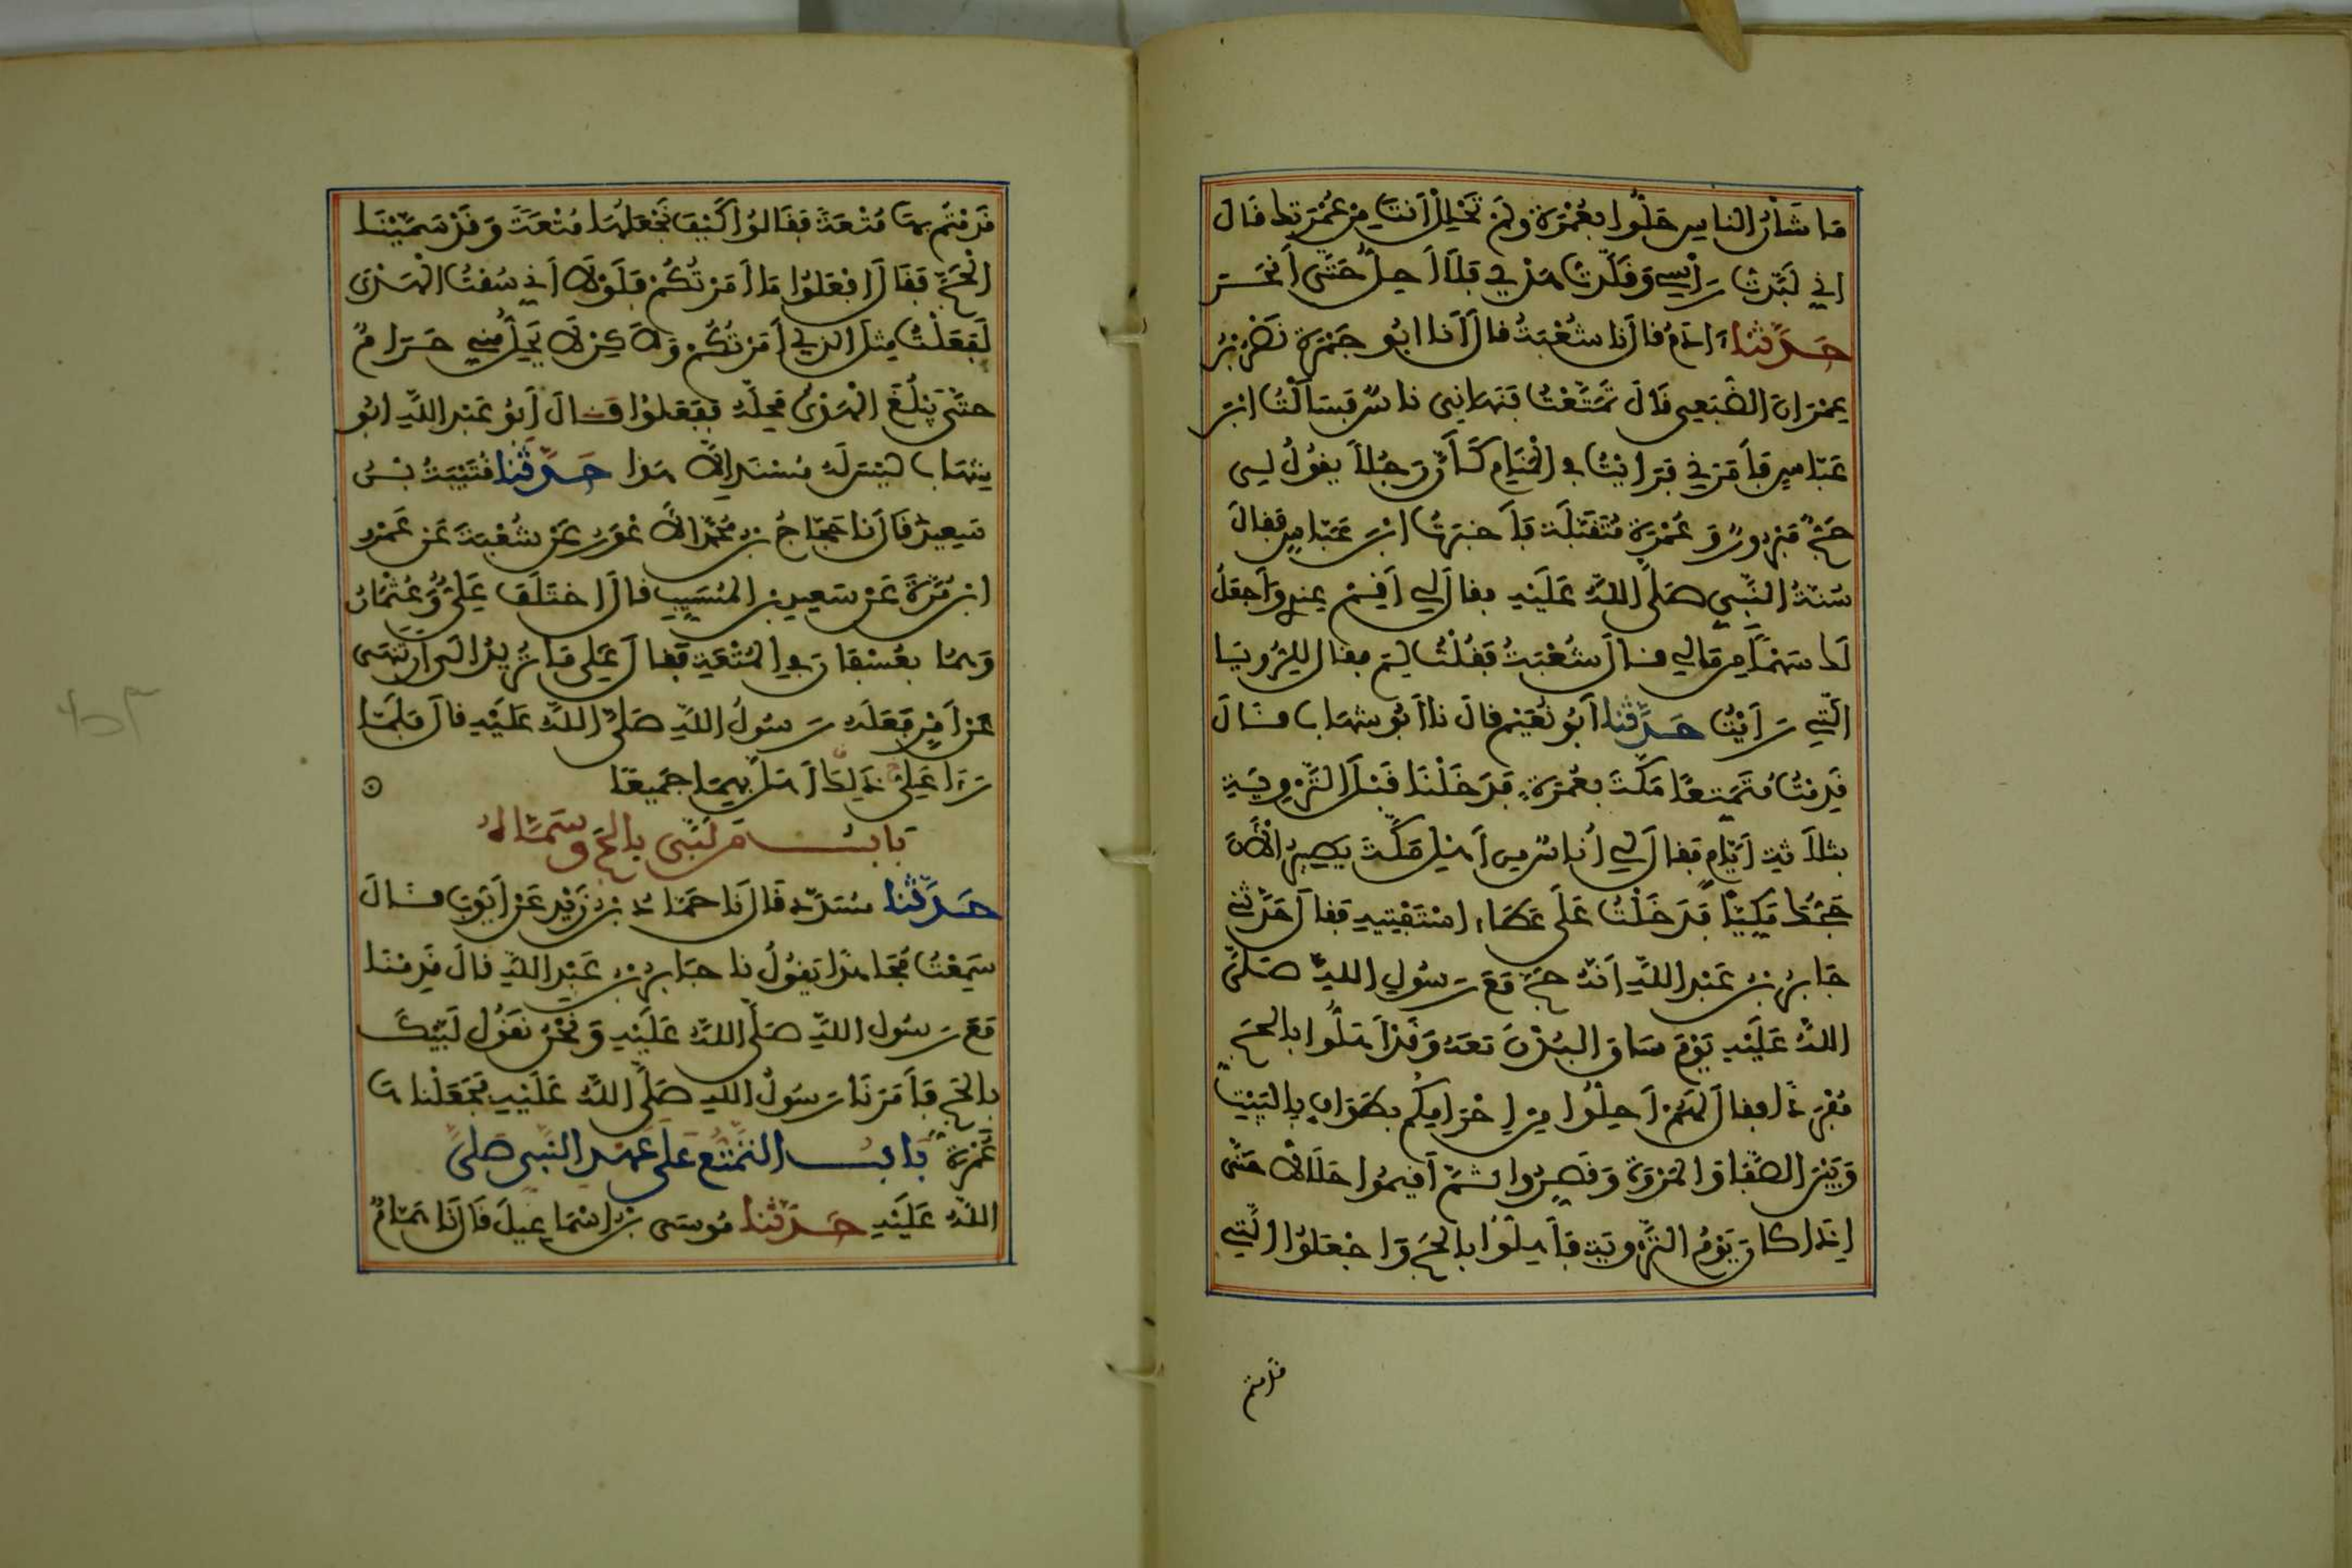 مَا شَأْنُ النَّاسِ حَلُّوا بِعُمْرَةٍ وَلَمْ تَحْلِلْ أَنْتَ مِنْ عُمْرَتِكَ قَالَ
إني لَبَّدْتُ رَأْسِي وَقَلَّدْتُ هَدْيِي فَلَا أَحِلُّ حَتَّى أَنْحَرَ
حَدَّثَنَا ءَادَمُ قَالَ نَا شُعْبَةُ قَالَ أَنَا أَبُو جَمْرَةَ نَصْرُ بْنُ
عِمْرَانَ الضُّبَعِي قَالَ تَمَتَّعْتُ فَنَهَانِي نَاسٌ فَسَأَلْتُ ابْنَ
عَبَّاسٍ فَأَمَرَنِي فَرَأَيْتُ فِي الْمَنَامِ كَأَنَّ رَجُلًا يَقُولُ لِي
حَجٌّ مَبْرُورٌ وَعُمْرَةٌ مُتَقَبَّلَةٌ فَأَخْبَرْتُ ابْنَ عَبَّاسٍ فَقَالَ
سُنَّةُ النَّبِيِّ صَلَّى اللَّهُ عَلَيْهِ فقَالَ لِي أَقِمْ عِنْدِي وَأَجْعَلُ
لَكَ سَهْمًا مِنْ مَالِي قَالَ شُعْبَةُ فَقُلْتُ لِمَ فقَالَ لِلرُّؤْيَا
الَّتِي رَأَيْتُ حَدَّثَنَا أَبُو نُعَيْمٍ قَالَ نَا أَبُو شِهَابٍ قَالَ
قَدِمْتُ مُتَمَتِّعًا مَكَّةَ بِعُمْرَةٍ فَدَخَلْنَا قَبْلَ التَّرْوِيَةِ
بِثَلَاثَةِ أَيَّامٍ فَقَالَ لِي أُنَاسٌ مِنْ أَهْلِ مَكَّةَ يَصِيرُ الْآنَ
حَجُّكَ مَكِّيًّا فَدَخَلْتُ عَلَى عَطَاءٍ اسْتَفْتِيهِ فَقَالَ حَدَّثَنِي
جَابِرُ بْنُ عَبْدِ اللَّهِ أَنَّهُ حَجَّ مَعَ رَسُولِ اللَّهِ صَلَّى
اللَّهُ عَلَيْهِ يَوْمَ سَاقَ الْبُدْنَ مَعَهُ وَقَدْ أَهَلُّوا بِالْحَجِّ
مُفْرَدًا فقَالَ لَهُمْ أَحِلُّوا مِنْ إِحْرَامِكُمْ بِطَوَافٍ بِالْبَيْتِ
وَبَيْنَ الصَّفَا وَالْمَرْوَةِ وَقَصِّرُوا ثُمَّ أَقِيمُوا حَلَالًا حَتَّى
إِذَا كَانَ يَوْمُ التَّرْوِيَةِ فَأَهِلُّوا بِالْحَجِّ وَاجْعَلُوا الَّتِي
قدمتم
قَدِمْتُمْ بِهَا مُتْعَةً فَقَالُوا كَيْفَ نَجْعَلُهَا مُتْعَةً وَقَدْ سَمَّيْنَا
الْحَجَّ فَقَالَ افْعَلُوا مَا أَمَرْتُكُمْ فَلَوْلَا أَنِّي سُقْتُ الْهَدْيَ
لَفَعَلْتُ مِثْلَ الَّذِي أَمَرْتُكُمْ وَلَاكِنْ لَا يَحِلُّ مِنِّي حَرَامٌ
حَتَّى يَبْلُغَ الْهَدْيُ مَحِلَّهُ فَفَعَلُوا قَالَ أَبُو عَبْدِ اللَّهِ أَبُو
شِهَابٍ لَيْسَ لَهُ مُسْنَدٌ إِلَّا هَذَا حَدَّثَنَا قُتَيْبَةُ بْنُ
سَعِيدٍ قَالَ نَا حَجَّاجُ بْنُ مُحَمَّدٍ الْأَعْوَرُ عَنْ شُعْبَةَ عَنْ عَمْرِو
ابْنِ مُرَّةَ عَنْ سَعِيدِ بْنِ الْمُسَيِّبِ قَالَ اخْتَلَفَ عَلِيٌّ وَعُثْمَانُ
وَهُمَا بِعُسْفَانَ فِي الْمُتْعَةِ فَقَالَ عَلِي مَا تُرِيدُ إِلَى أَنْ تَنْهَى
عَنْ أَمْرٍ فَعَلَهُ رَسُولُ اللَّهِ صَلَّى اللَّهُ عَلَيْهِ قَالَ فَلَمَّا
رَءَا عَلِي ذَلِكَ أَهَلَّ بِهِمَا جَمِيعًا
بَابُ مَنْ لَبَّى بِالْحَجِّ وَسَمَّاهُ
حَدَّثَنَا مُسَدَّدٌ قَالَ نَا حَمَّادُ بْنُ زَيْدٍ عَنْ أَيُّوبَ قَالَ
سَمِعْتُ مُجَاهِدًا يَقُولُ نَا جَابِرُ بْنُ عَبْدِ اللَّهِ قَالَ قَدِمْنَا
مَعَ رَسُولِ اللَّهِ صَلَّى اللَّهُ عَلَيْهِ وَنَحْنُ نَقُولُ لَبَّيْكَ
بِالْحَجِّ فَأَمَرَنَا رَسُولُ اللَّهِ صَلَّى اللَّهُ عَلَيْهِ فَجَعَلْنَاهَا
عُمْرَةً بَابُ التَّمَتُّعِ عَلَى عَهْدِ النَّبِي صَلَّى
اللَّهُ عَلَيْهِ حَدَّثَنَا مُوسَى بْنُ إِسْمَاعِيلَ قَالَ نَا هَمَّامٌ